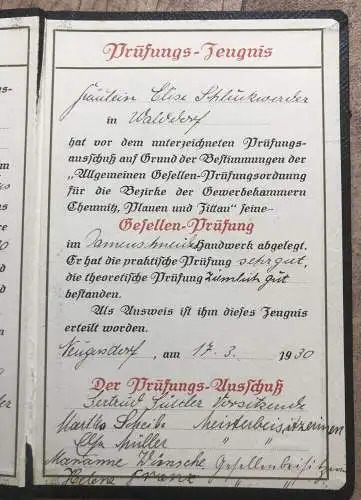 Prüfungs-Zeugnis
Fräulein Elise Schluckwerder
in Walddorf
hat vor dem unterzeichneten Prüfungs-
ausschuß auf Grund der Bestimmungen der
„Allgemeinen Gesellen-Prüfungsordnung
für die Bezirke der Gewerbekammern
Chemnitz, Plauen und Zittau“ seine
Gesellen-Prüfung
im Damenschneid. Handwerk abgelegt.
Er hat die praktische Prüfung sehr gut,
die theoretische Prüfung ziemlich gut
bestanden.
Als Ausweis ist ihm dieses Zeugnis
erteilt worden.
Neugersdorf, am 17. 3. 1930
Der Prüfungs-Ausschuß
Gertrud Vorsitzende
Martha Scheibe Meisterbeisitzerinnen
Elsa Müller " "
Marianne Wünsche Gesellenbeisitzerin
Helene Franz " "